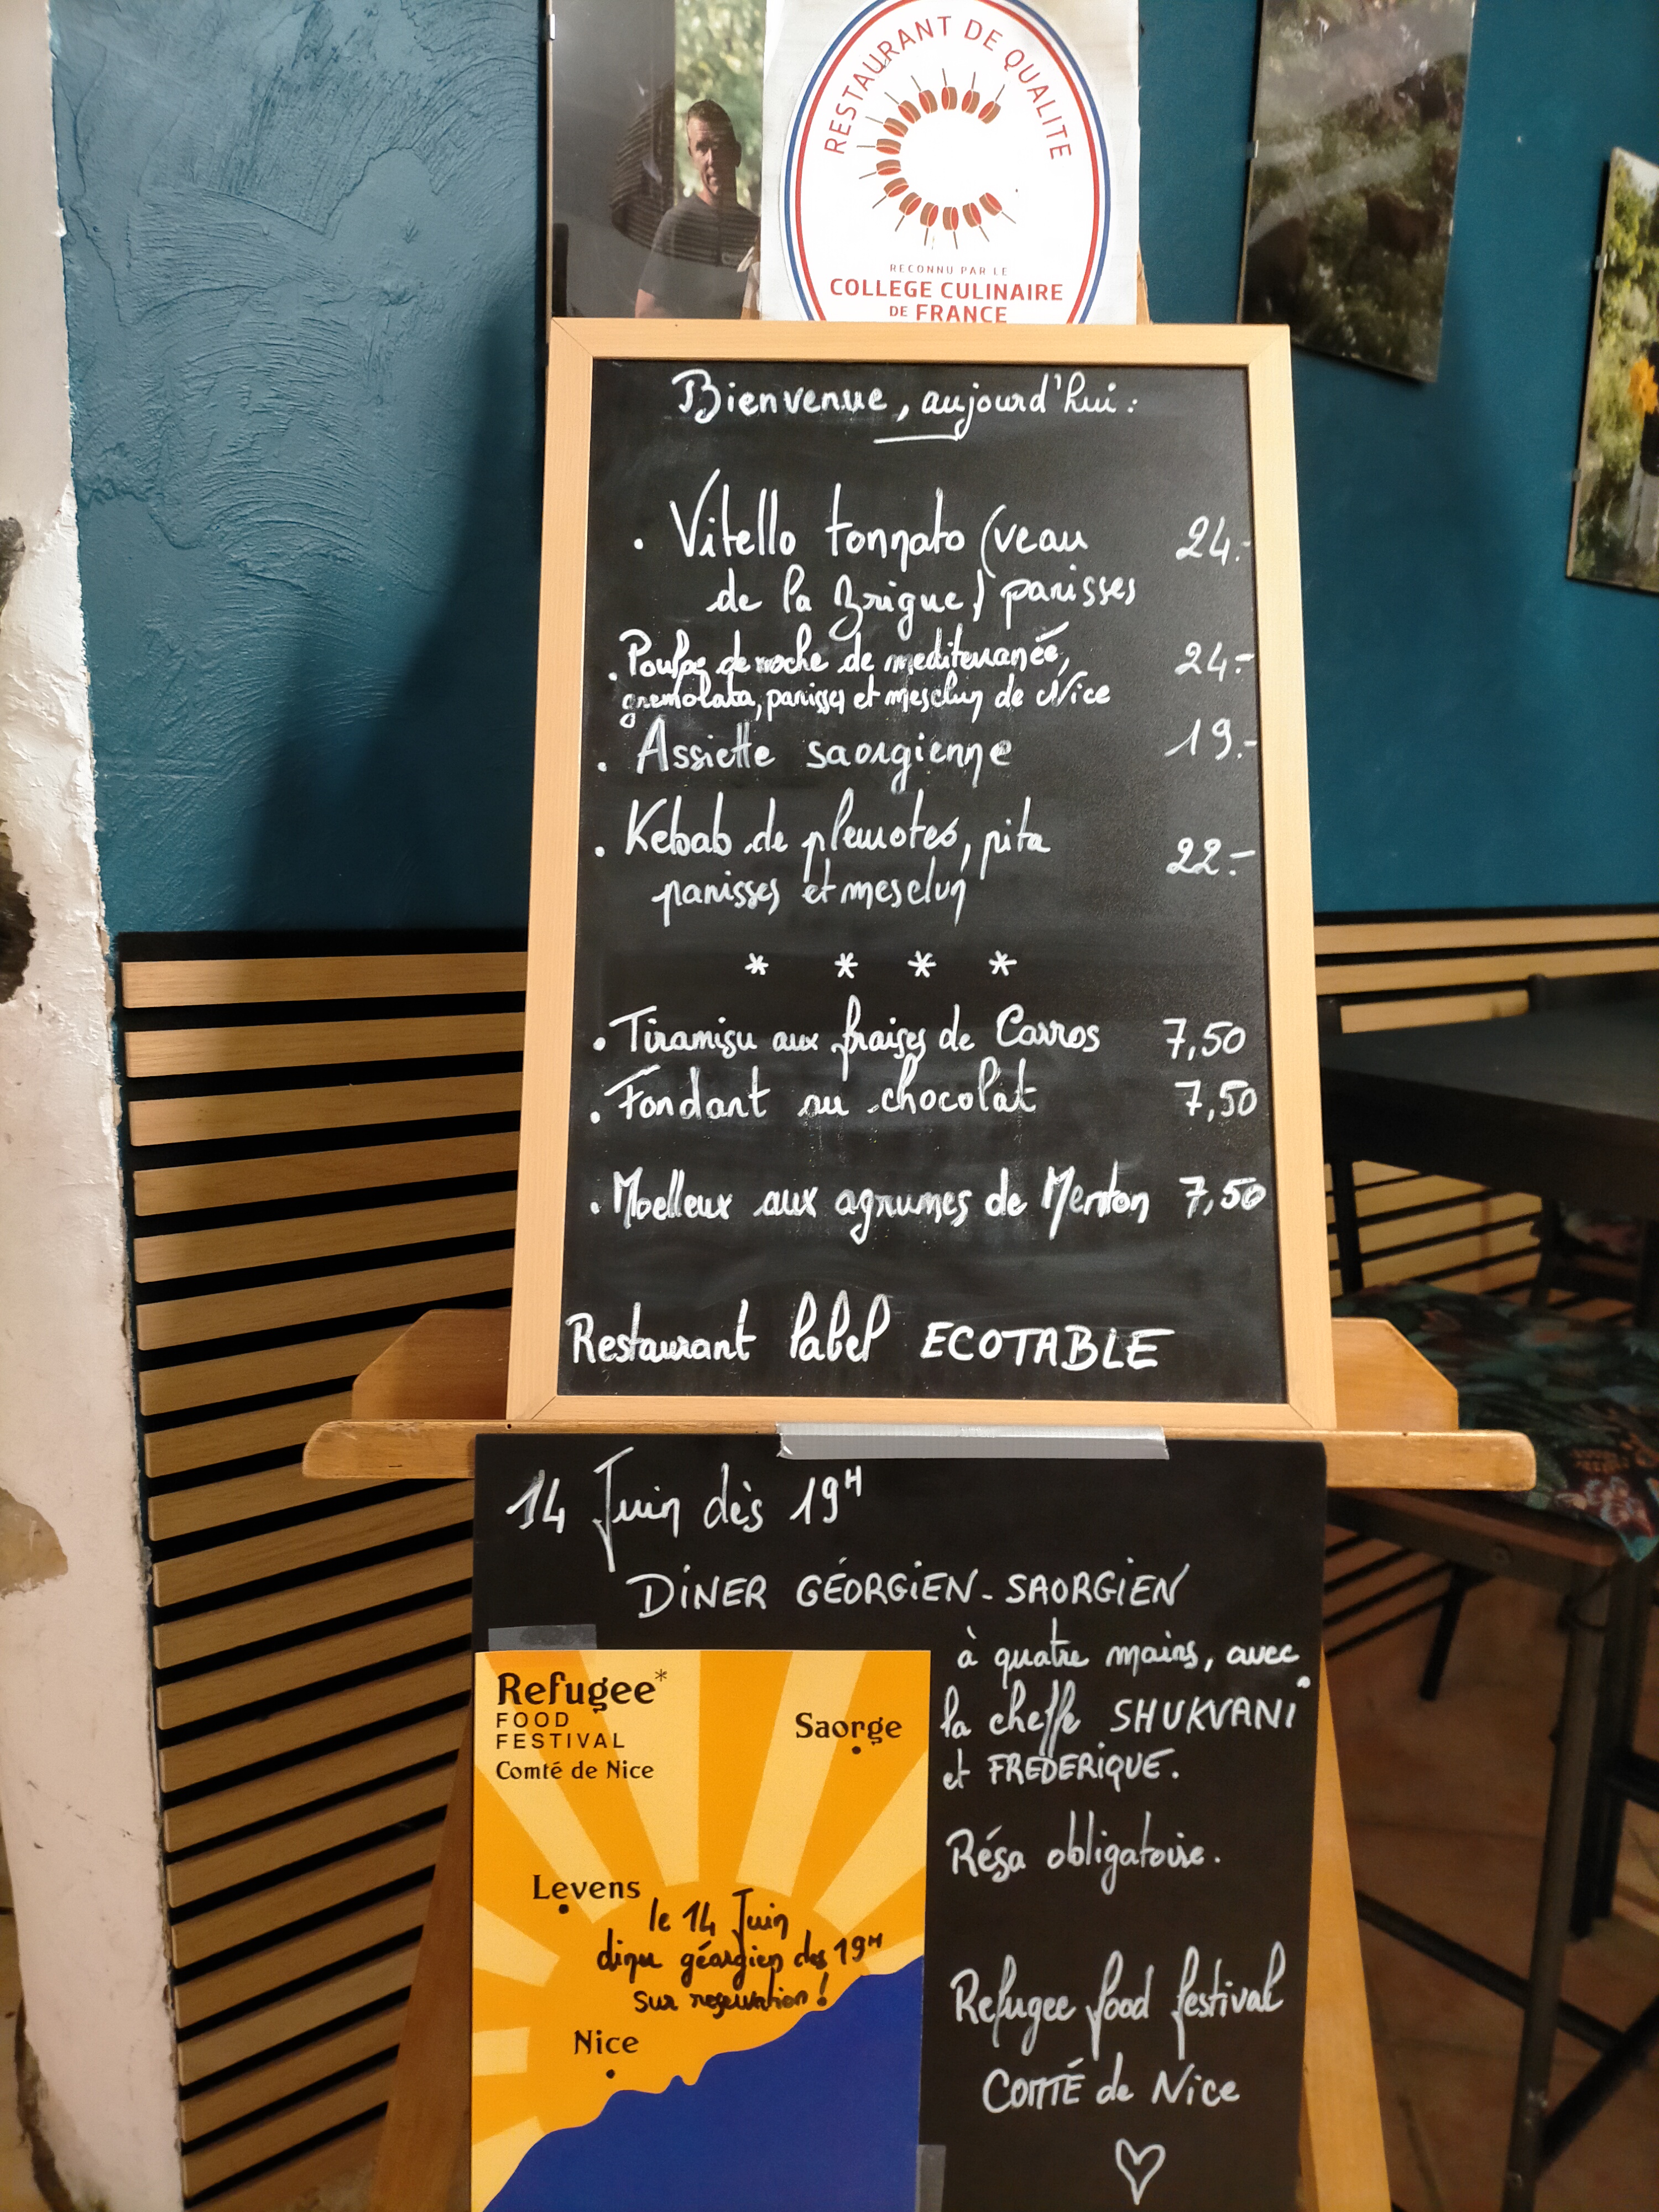 RESTAURANT DE QUALITE
RECONNU PAR LE
COLLEGE CULINAIRE
DE FRANCE
Bienvenue, aujourd'hui :
• Vitello tonnato (veau 24.-
de la Brigue) panisses
• Poulpe de roche de mediterranée, 24.-
gremolata, panisses et mesclun de Nice
• Assiette saorgienne 19.-
• Kebab de pleurotes, pita 22.-
panisses et mesclun
* * * *
• Tiramisu aux fraises de Carros 7,50
• Fondant au chocolat 7,50
• Moelleux aux agrumes de Menton 7,50
Restaurant label ECOTABLE
14 Juin dès 19H
DINER GÉORGIEN - SAORGIEN
à quatre mains, avec
la cheffe SHUKVANI
et FREDERIQUE.
Résa obligatoire.
Refugee food festival
COMTÉ de Nice
Refugee*
FOOD
FESTIVAL
Comté de Nice
Saorge
Levens
le 14 Juin
diner géorgien dès 19H
sur reservation !
Nice